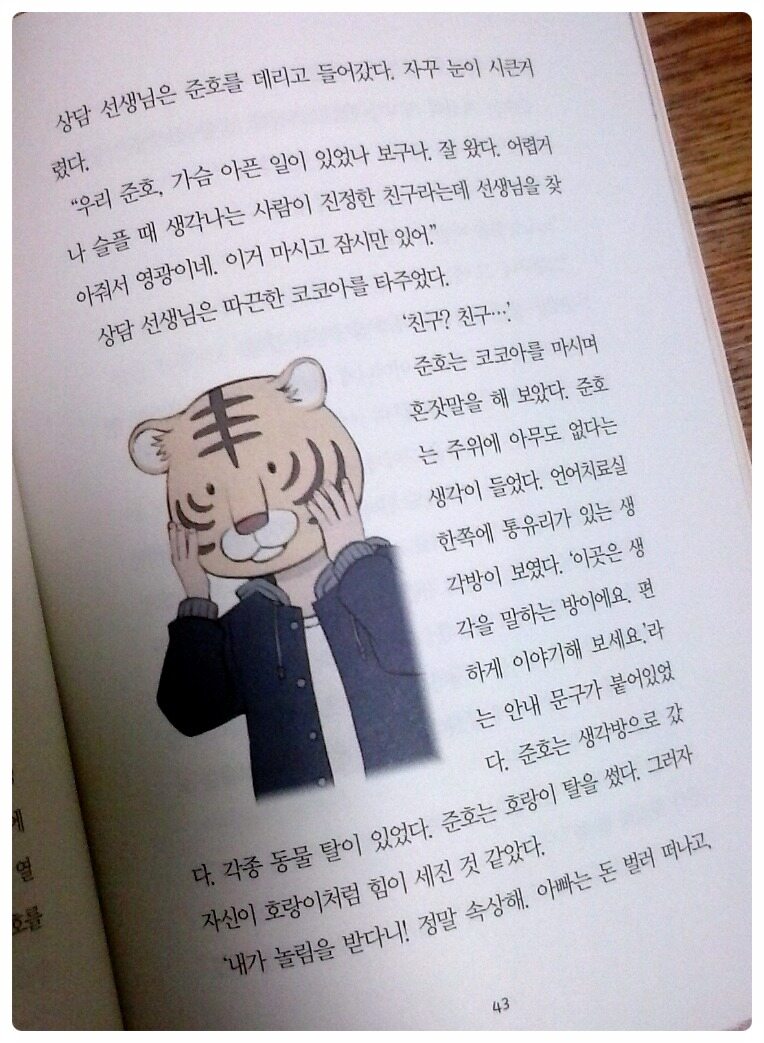 상담 선생님은 준호를 데리고 들어갔다. 자꾸 눈이 시큰거
렸다.
"우리 준호, 가슴 아픈 일이 있었나 보구나. 잘 왔다. 어렵거
나 슬플 때 생각나는 사람이 진정한 친구라는데 선생님을 찾
아줘서 영광이네. 이거 마시고 잠시만 있어."
상담 선생님은 따끈한 코코아를 타주었다.
'친구? 친구….'
준호는 코코아를 마시며
혼잣말을 해 보았다. 준호
는 주위에 아무도 없다는
생각이 들었다. 언어치료실
한쪽에 통유리가 있는 생
각방이 보였다. '이곳은 생
각을 말하는 방이에요. 편
하게 이야기해 보세요.'라
는 안내 문구가 붙어있었
다. 준호는 생각방으로 갔
다. 각종 동물 탈이 있었다. 준호는 호랑이 탈을 썼다. 그러자
자신이 호랑이처럼 힘이 세진 것 같았다.
'내가 놀림을 받다니! 정말 속상해. 아빠는 돈 벌러 떠나고,
43
에
열
호를